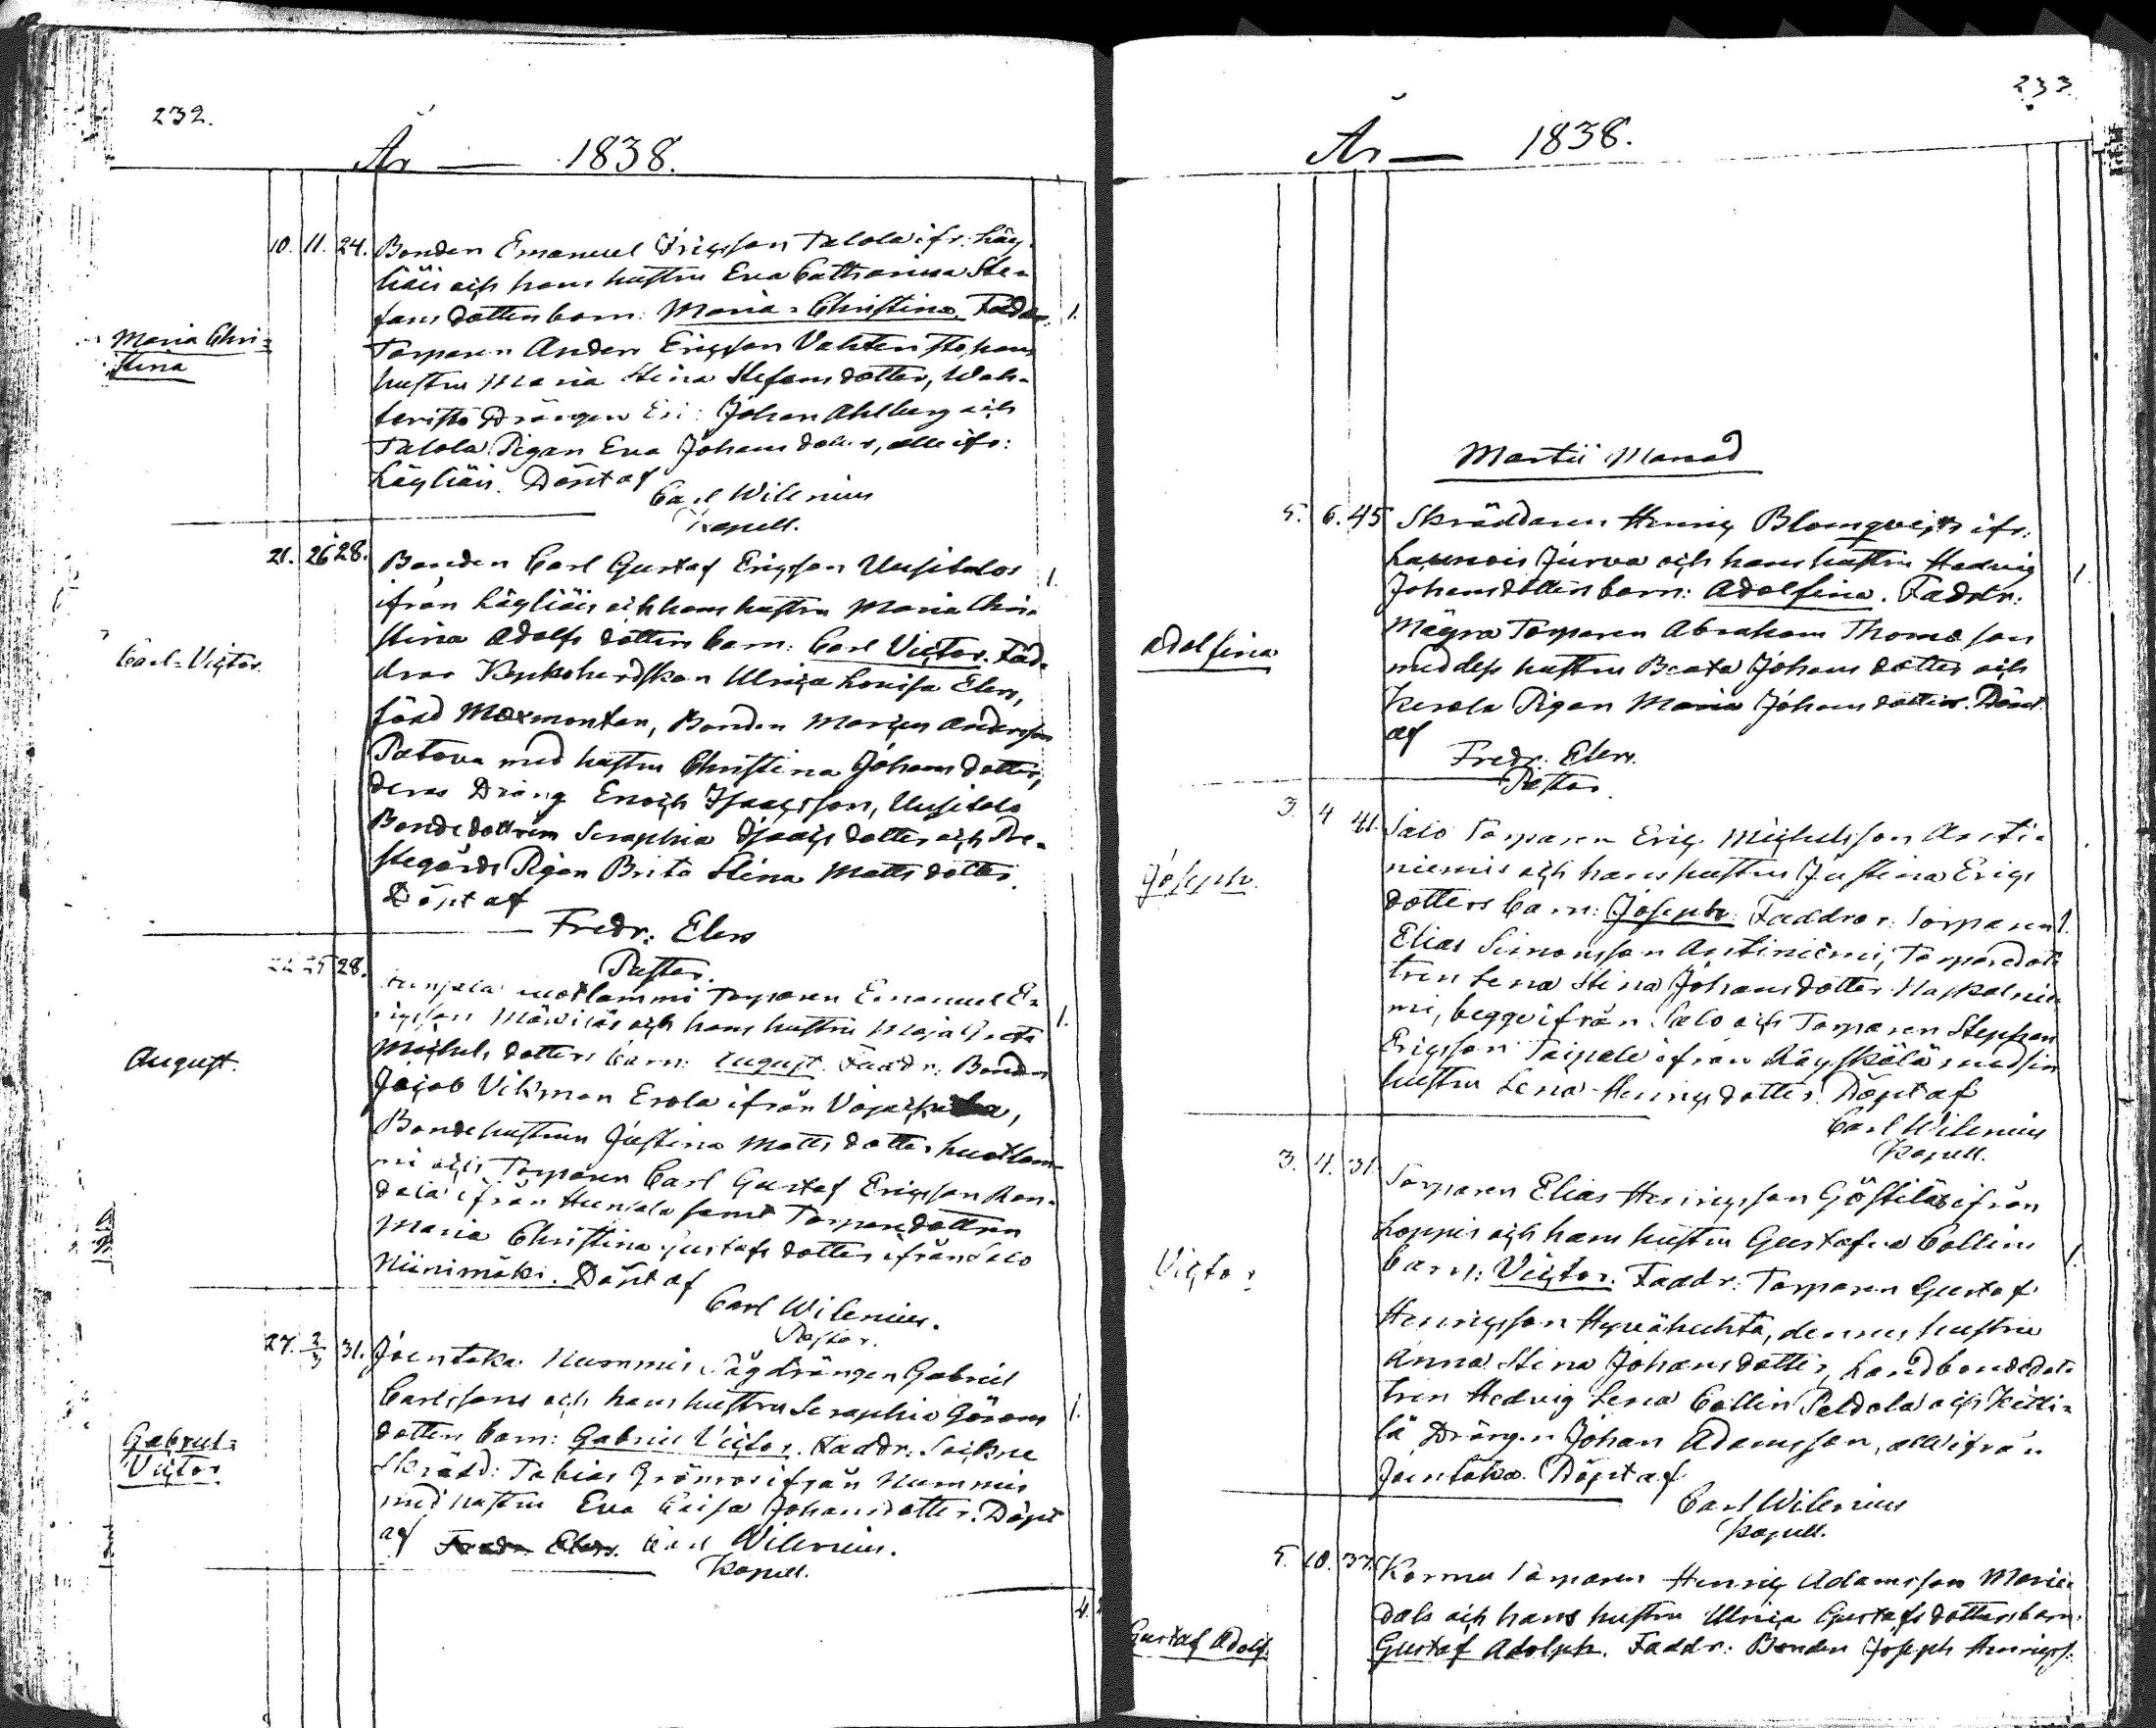 232.
År — 1838.
10. 11. 24. Bonden Emanuel Ericsson Talola ifr: Läy-
liäis och hans hustru Eva Catharina Ste-
fans dotters barn: Maria-Christina. Faddr: 1.
Maria Chri-
stina
Torparen Anders Ericsson Vahteristo, hans
hustru Maria Stina Stefans dotter, Wah-
teristo Drängen Eri: Johan Ahlberg och
Talola Pigan Eva Johans doter, alle ifr:
Läyliäis. Döpt af
Carl Wilenius
Kapell.
21. 26 28. Bonden Carl Gustaf Ericsson Uusitalos 1.
ifrån Läyliäis och hans hustru Maria Chri-
stina Adolfs dotters barn: Carl Victor. Fad-
Carl-Victor.
drar Kyrkoherdskan Ulrica Lovisa Elers,
född Moxmontan, Bonden Marcus Andersson
Patova med hustru Christina Johans dotter,
deras Dräng Enoch Isaacsson, Uusitalo
Bondedottren Seraphia Isaacs dotter och Pre-
stegårds Pigan Brita Stina Matts dotter.
Döpt af
Fredr: Elers
Pastor.
22 25 28. Torparen Emanuel E-
ricsson och hans hustru Maja 1.
Michels dotters barn: August. Faddr: Bonden
August.
Jacob Vikman Erola ifrån
Bondehustrun Justina Matts dotter Kuotlam-
mi och Torparen Carl Gustaf Ericsson Ran-
dala ifrån Hunsala samt Torparedottren
Maria Christina Gustafs dotter ifrån Salo
Niinimäki. Döpt af
Carl Wilenius.
Pastor.
27. 2/3 31. Joentaka Nummis Sågdrängen Gabriel
Carlssons och hans hustru Seraphia Görans 1.
dotters barn: Gabriel Victor. Faddr. Sockne
Gabriel-
Victor
Skrädd: Tobias Grönroos ifrån Nummis
med hustru Eva Caisa Johansdotter. Döpt
af Fredr. Elers. Carl Wilenius.
Kapell.
4.
233.
År — 1838.
Martii Manad
5. 6. 45 Skräddaren Henric Blomqvists ifr:
Launois Jurva och hans hustru Hedvig 1.
Johansdotters barn: Adolfina. Faddr:
Adolfina
Mägra Torparen Abraham Thomasson
med dess hustru Beata Johans dotter och
Kerola Pigan Maria Johans dotter. Döpt
af
Fredr: Elers.
Pastor.
3. 4 41. Salo Torparen Eric Michelsson Anti-
niemis och hans hustru Justina Erics
Joseph.
dotters barn: Joseph. Faddrar: Torparen 1.
Elias Simonsson Antiniemi, Torparedot-
tren Lena Stina Johans dotter
mi, begge ifrån Salo och Torparen Stephan
Ericsson Taipale ifrån Räyskälä med sin
hustru Lena Henrics dotter. Döpt af
Carl Wilenius
Kapell.
3. 4. 31. Torparen Elias Henricsson Göstiläs ifrån
Loppis och hans hustru Gustafva Collins
barn: Victor. Faddr: Torparen Gustaf 1.
Victor
Henricsson Hyvähuhta, dennes hustru
Anna Stina Johansdotter, Landbondedot-
tren Hedvig Lena Collin Peldola och Kitti-
lä Drängen Johan Adamsson, alle ifrån
Joentaka. Döpt af
Carl Wilenius
Kapell.
5. 10. 37. Kormu Torparen Henric Adamsson Marie-
dals och hans hustru Ulrica Gustafs dotters barn:
Gustaf Adolf.
Gustaf Adolph. Faddr: Bonden Joseph Henricss: